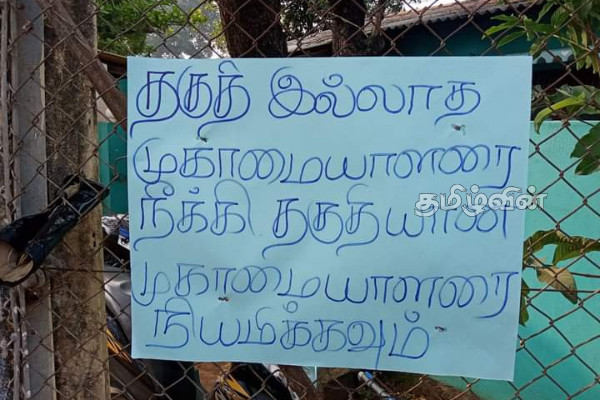 தகுதி இல்லாத
முகாமையாளரை
நீக்கி தகுதியான
முகாமையாளரை
நியமிக்கவும்
தமிழ்வின்